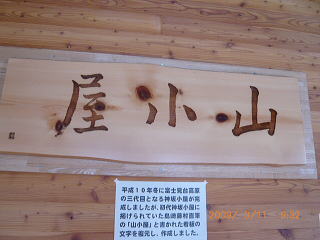 屋小山
平成１０年冬に富士見台高原
の三代目となる神坂小屋が完
成しましたが、初代神坂小屋に
掲げられていた島崎藤村直筆
の「山小屋」と書かれた看板の
文字を復元し、作成しました。